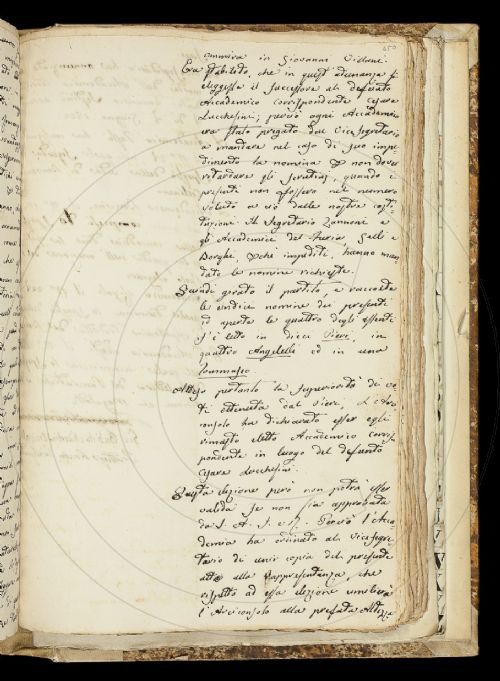 450
ammira in Giovanni Villani.
Era stabilito, che in quest'adunanza si
eleggesse il Successore al defunto
Accademico corrispondente Cesare
Lucchesini; perciò ogni Accademico
era stato pregato dal Vicesegretario
a mandare nel caso di suo impe-
dimento la nomina non dover
ritardare gli Scrutini, quando i
presenti non fossero nel numero
voluto a ciò dalle nostre costi-
tuzioni. Il Segretario Zannoni e
gli Accademici Del Furia, Galli e
Borghi, che impediti, hanno man-
dato le nomine richieste.
Quindi girato il partito e raccolte
le undici nomine dei presenti
ed aperte le quattro degli assenti
s'è letto in dieci Vieri, in
quattro Angelelli ed in una
Tommaseo.
Atteso pertanto la superiorità di vo-
ti ottenuta dal Vieri, L'Arci-
consolo ha dichiarato esser egli
rimasto eletto Accademico corris-
pondente in luogo del defunto
Cesare Lucchesini.
Questa elezione però non potrà esser
valida se non sia approvata
da S. A. I. e R. Perciò l'Acca-
demia ha ordinato al Vicesegre-
tario di unir copia del presente
atto alla Rappresentanza, che
rispetto ad essa elezione umilierà
l'Arciconsolo alla prefata Altezza